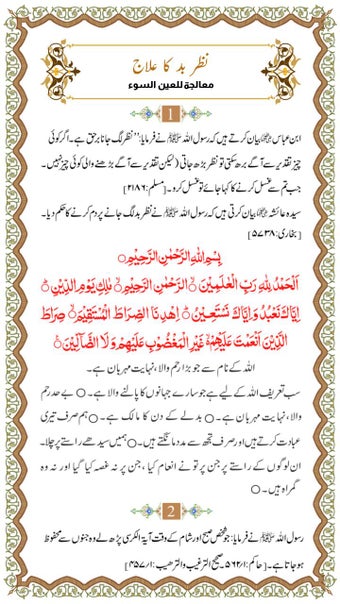 نظر بد کا علاج
معالجة للعين السوء
1
ابن عباس رضی اللہ عنہما بیان کرتے ہیں کہ رسول اللہ ﷺ نے فرمایا: ’’نظر لگ جانا برحق ہے۔ اگر کوئی
چیز تقدیر سے آگے بڑھ سکتی تو نظر بڑھ جاتی (لیکن تقدیر سے آگے بڑھنے والی کوئی چیز نہیں۔
جب تم سے غسل کرنے کا کہا جائے تو غسل کرو۔ [مسلم: ۲۱۸۶]
سیدہ عائشہ رضی اللہ عنہا بیان کرتی ہیں کہ رسول اللہ ﷺ نے نظر بد لگ جانے پر دم کرنے کا حکم دیا۔
[بخاری: ۵۷۳۸]
بِسْمِ اللّٰهِ الرَّحْمٰنِ الرَّحِيْمِ ۝
اَلْحَمْدُ لِلّٰهِ رَبِّ الْعٰلَمِيْنَ ۝ الرَّحْمٰنِ الرَّحِيْمِ ۝ مٰلِكِ يَوْمِ الدِّيْنِ ۝
اِيَّاكَ نَعْبُدُ وَاِيَّاكَ نَسْتَعِيْنُ ۝ اِهْدِنَا الصِّرَاطَ الْمُسْتَقِيْمَ ۝ صِرَاطَ
الَّذِيْنَ اَنْعَمْتَ عَلَيْهِمْ ۝ غَيْرِ الْمَغْضُوْبِ عَلَيْهِمْ وَلَا الضَّآلِّيْنَ ۝
اللہ کے نام سے جو بڑا رحم والا، نہایت مہربان ہے۔
سب تعریف اللہ کے لیے ہے جو سارے جہانوں کا پالنے والا ہے۔ ○ بے حد رحم
والا، نہایت مہربان ہے۔ ○ بدلے کے دن کا مالک ہے۔ ○ ہم صرف تیری
عبادت کرتے ہیں اور صرف تجھ سے مدد مانگتے ہیں۔ ○ ہمیں سیدھے راستے پر چلا۔
ان لوگوں کے راستے پر جن پر تو نے انعام کیا، جن پر نہ غصہ کیا گیا اور نہ وہ
گمراہ ہیں۔ ○
2
رسول اللہ ﷺ نے فرمایا: جو شخص صبح اور شام کے وقت آیۃ الکرسی پڑھ لے وہ جنوں سے محفوظ
ہو جاتا ہے۔ [حاکم: ۵۶۲/۱۔ صحیح الترغیب والترھیب: ۴۵۷/۱]